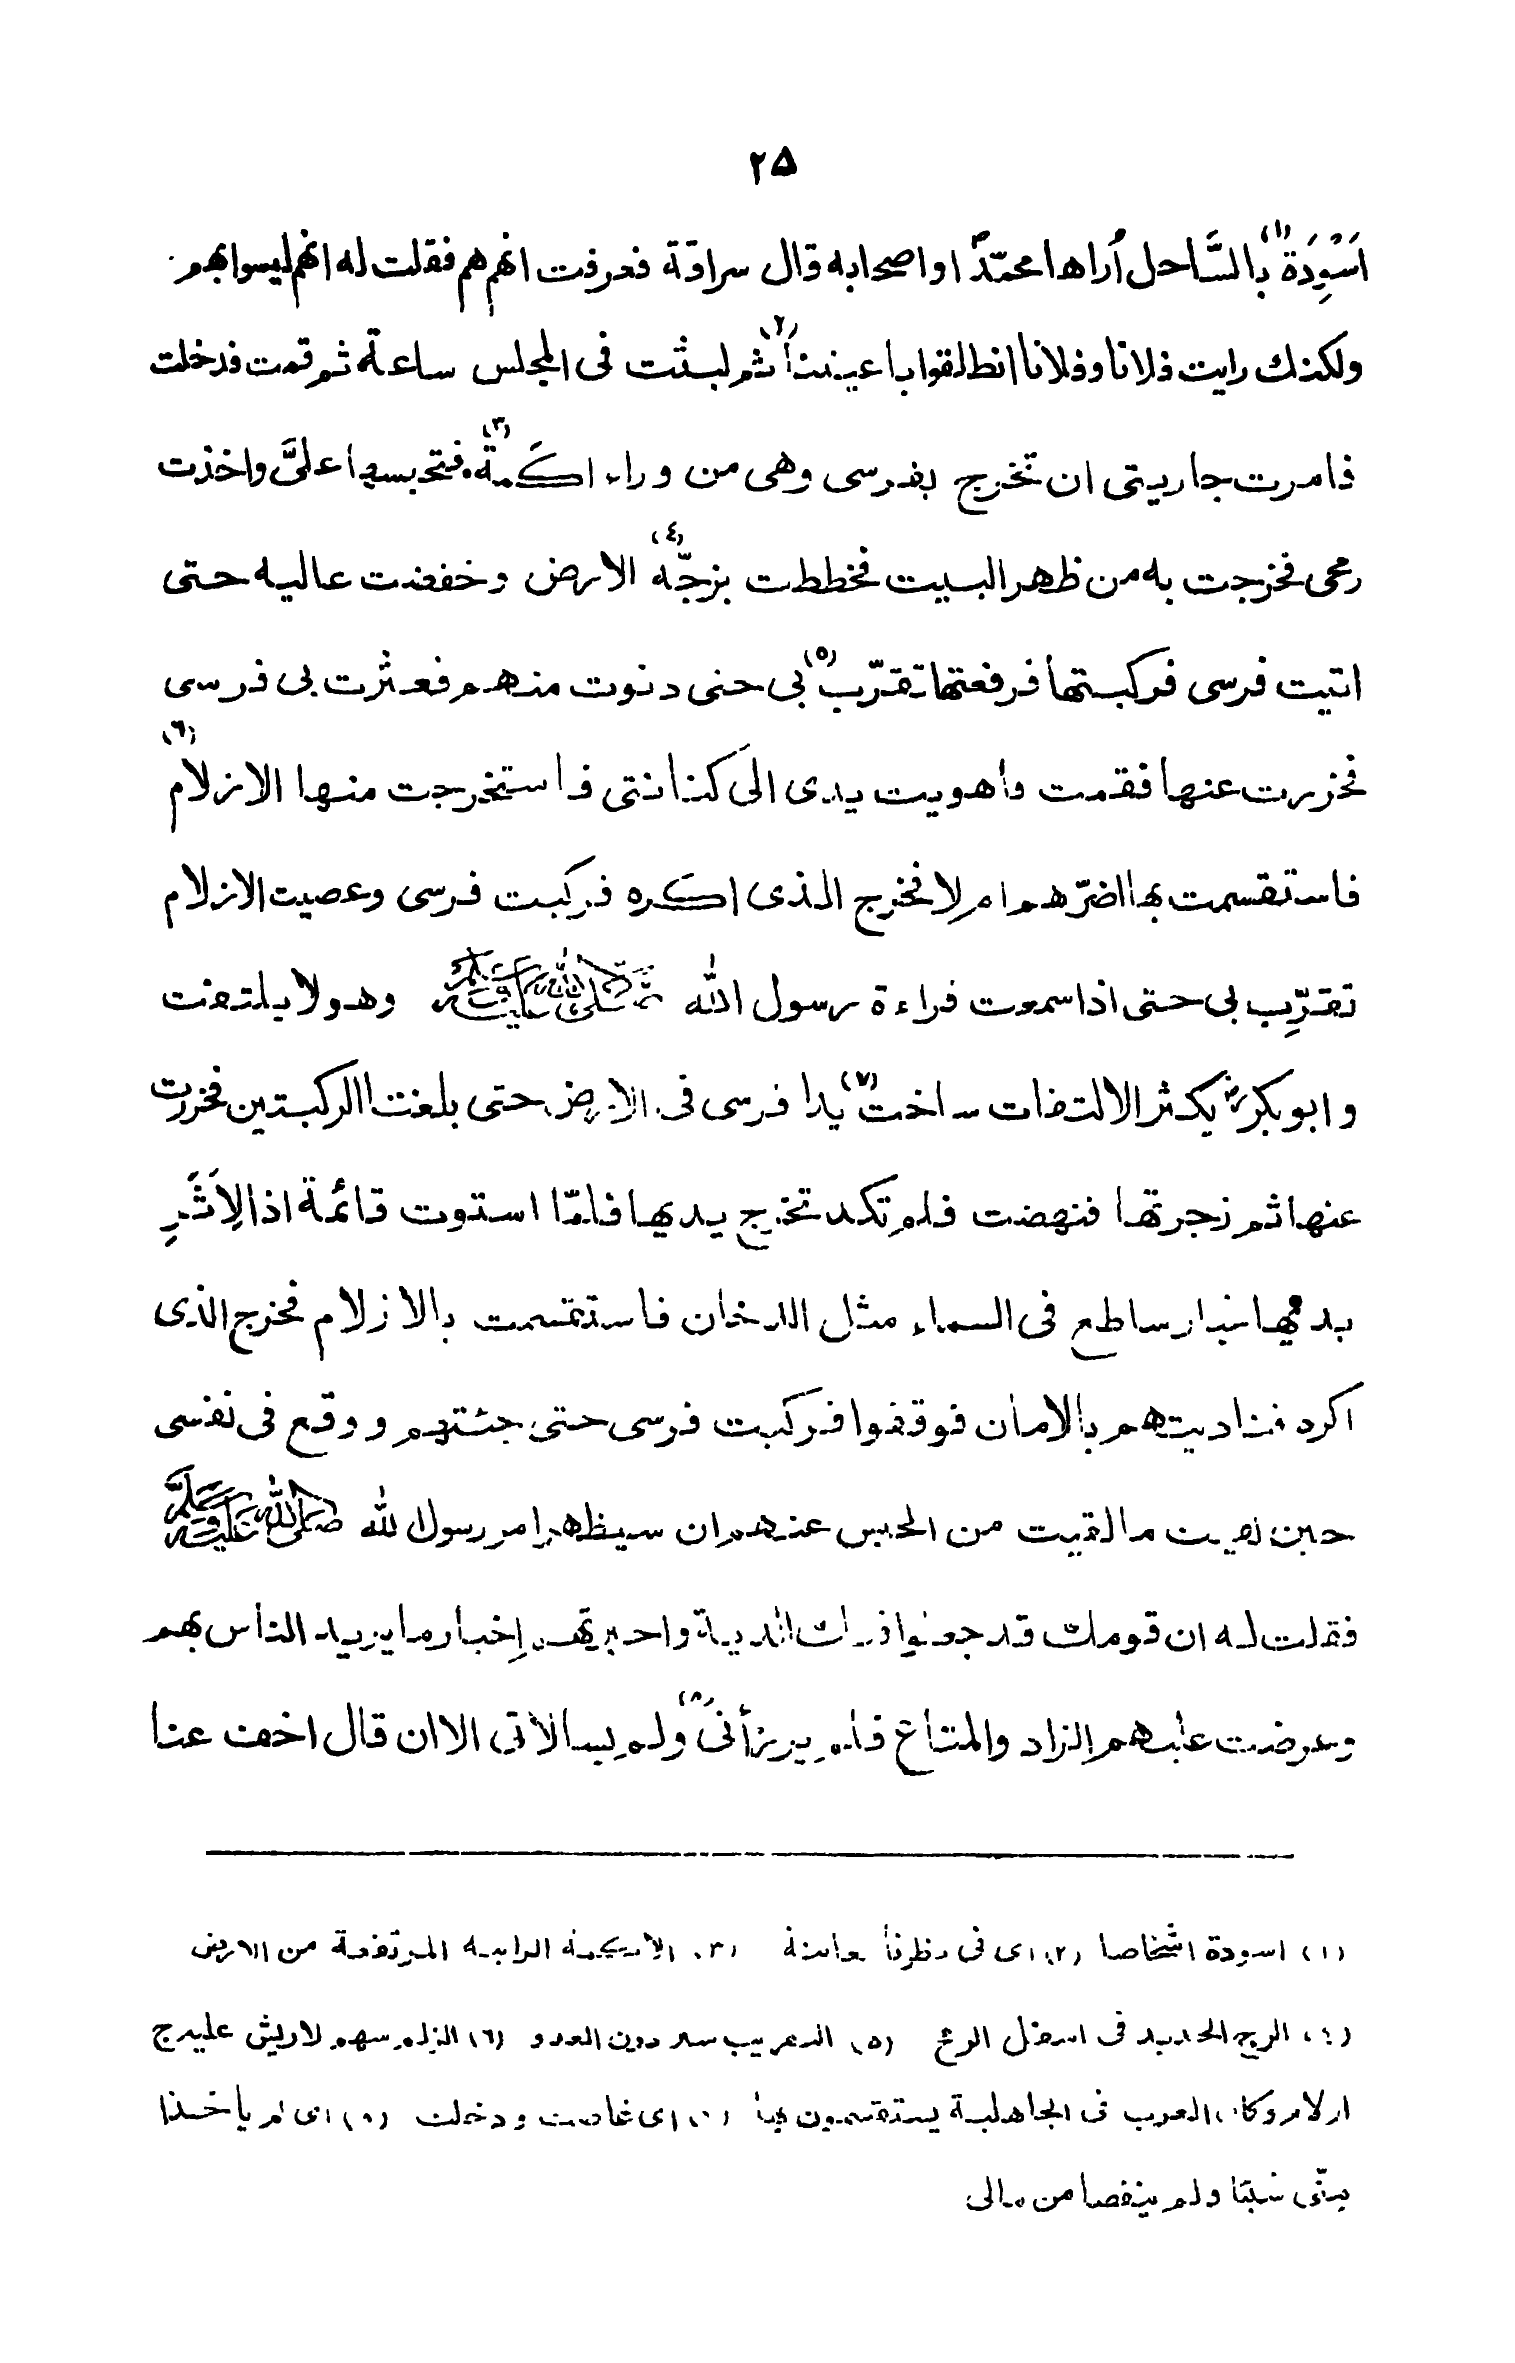 ٢٥
اَسْوِدَةً(١) بالسَّاحل اُراها محمّدًا و اصحابه قال سراقة فعرفت انهم هم فقلت له انهم ليسوا بهم
ولكنك رايت فلانا وفلانا انطلقوا باعيننا(٢) ثم لبثت فى المجلس ساعة ثم قمت فدخلت
فامرت جاريتى ان تخرج بفرسى وهى من وراء اكَمة(٣) فتحبسها علىَّ واخذت
رمحى فخرجت به من ظهر البيت فخططت بزجّه(٤) الارض وخفضت عاليه حتى
اتيت فرسى فركبتها فرفعتها تقرّب(٥) بى حتى دنوت منهم فعثرت بى فرسى
فخررت عنها فقمت واهويت يدى الى كنانتى فاستخرجت منها الازلام(٦)
فاستقسمت بها اضرّهم ام لا فخرج الذى اكره فركبت فرسى وعصيت الازلام
تقرِّب بى حتى اذا سمعت قراءة رسول الله صلى الله عليه وسلم وهو لا يلتفت
وابو بكرؓ يكثر الالتفات ساخت(٧) يدا فرسى فى الارض حتى بلغتا الركبتين فخررت
عنها ثم زجرتها فنهضت فلم تكد تخرج يديها فلمّا استوت قائمة اذا لاَثَرِ
يديها غبار ساطع فى السماء مثل الدخان فاستقسمت بالازلام فخرج الذى
اكره فناديتهم بالامان فوقفوا فركبت فرسى حتى جئتهم ووقع فى نفسى
حين لقيت ما لقيت من الحبس عنهم ان سيظهر امر رسول الله صلى الله عليه وسلم
فقلت له ان قومك قد جعلوا فيك الدية واخبرتهم اِخبار ما يريد الناس بهم
وعرضت عليهم الزاد والمتاع فلم يرزأنى(٨) ولم يسالانى الا ان قال اخف عنا
(١) اسودة اشخاصا (٢) اى فى نظرنا معاينة (٣) الاكمة الرابية المرتفعة من الارض
(٤) الزج الحديد فى اسفل الرمح (٥) التقريب سير دون العدو (٦) الزلم سهم لا ريش عليه ج
ازلام وكان العرب فى الجاهلية يستقسمون بها (٧) اى غاصت ودخلت (٨) اى لم ياخذا
منّى شيئا ولم ينقصا من مالى